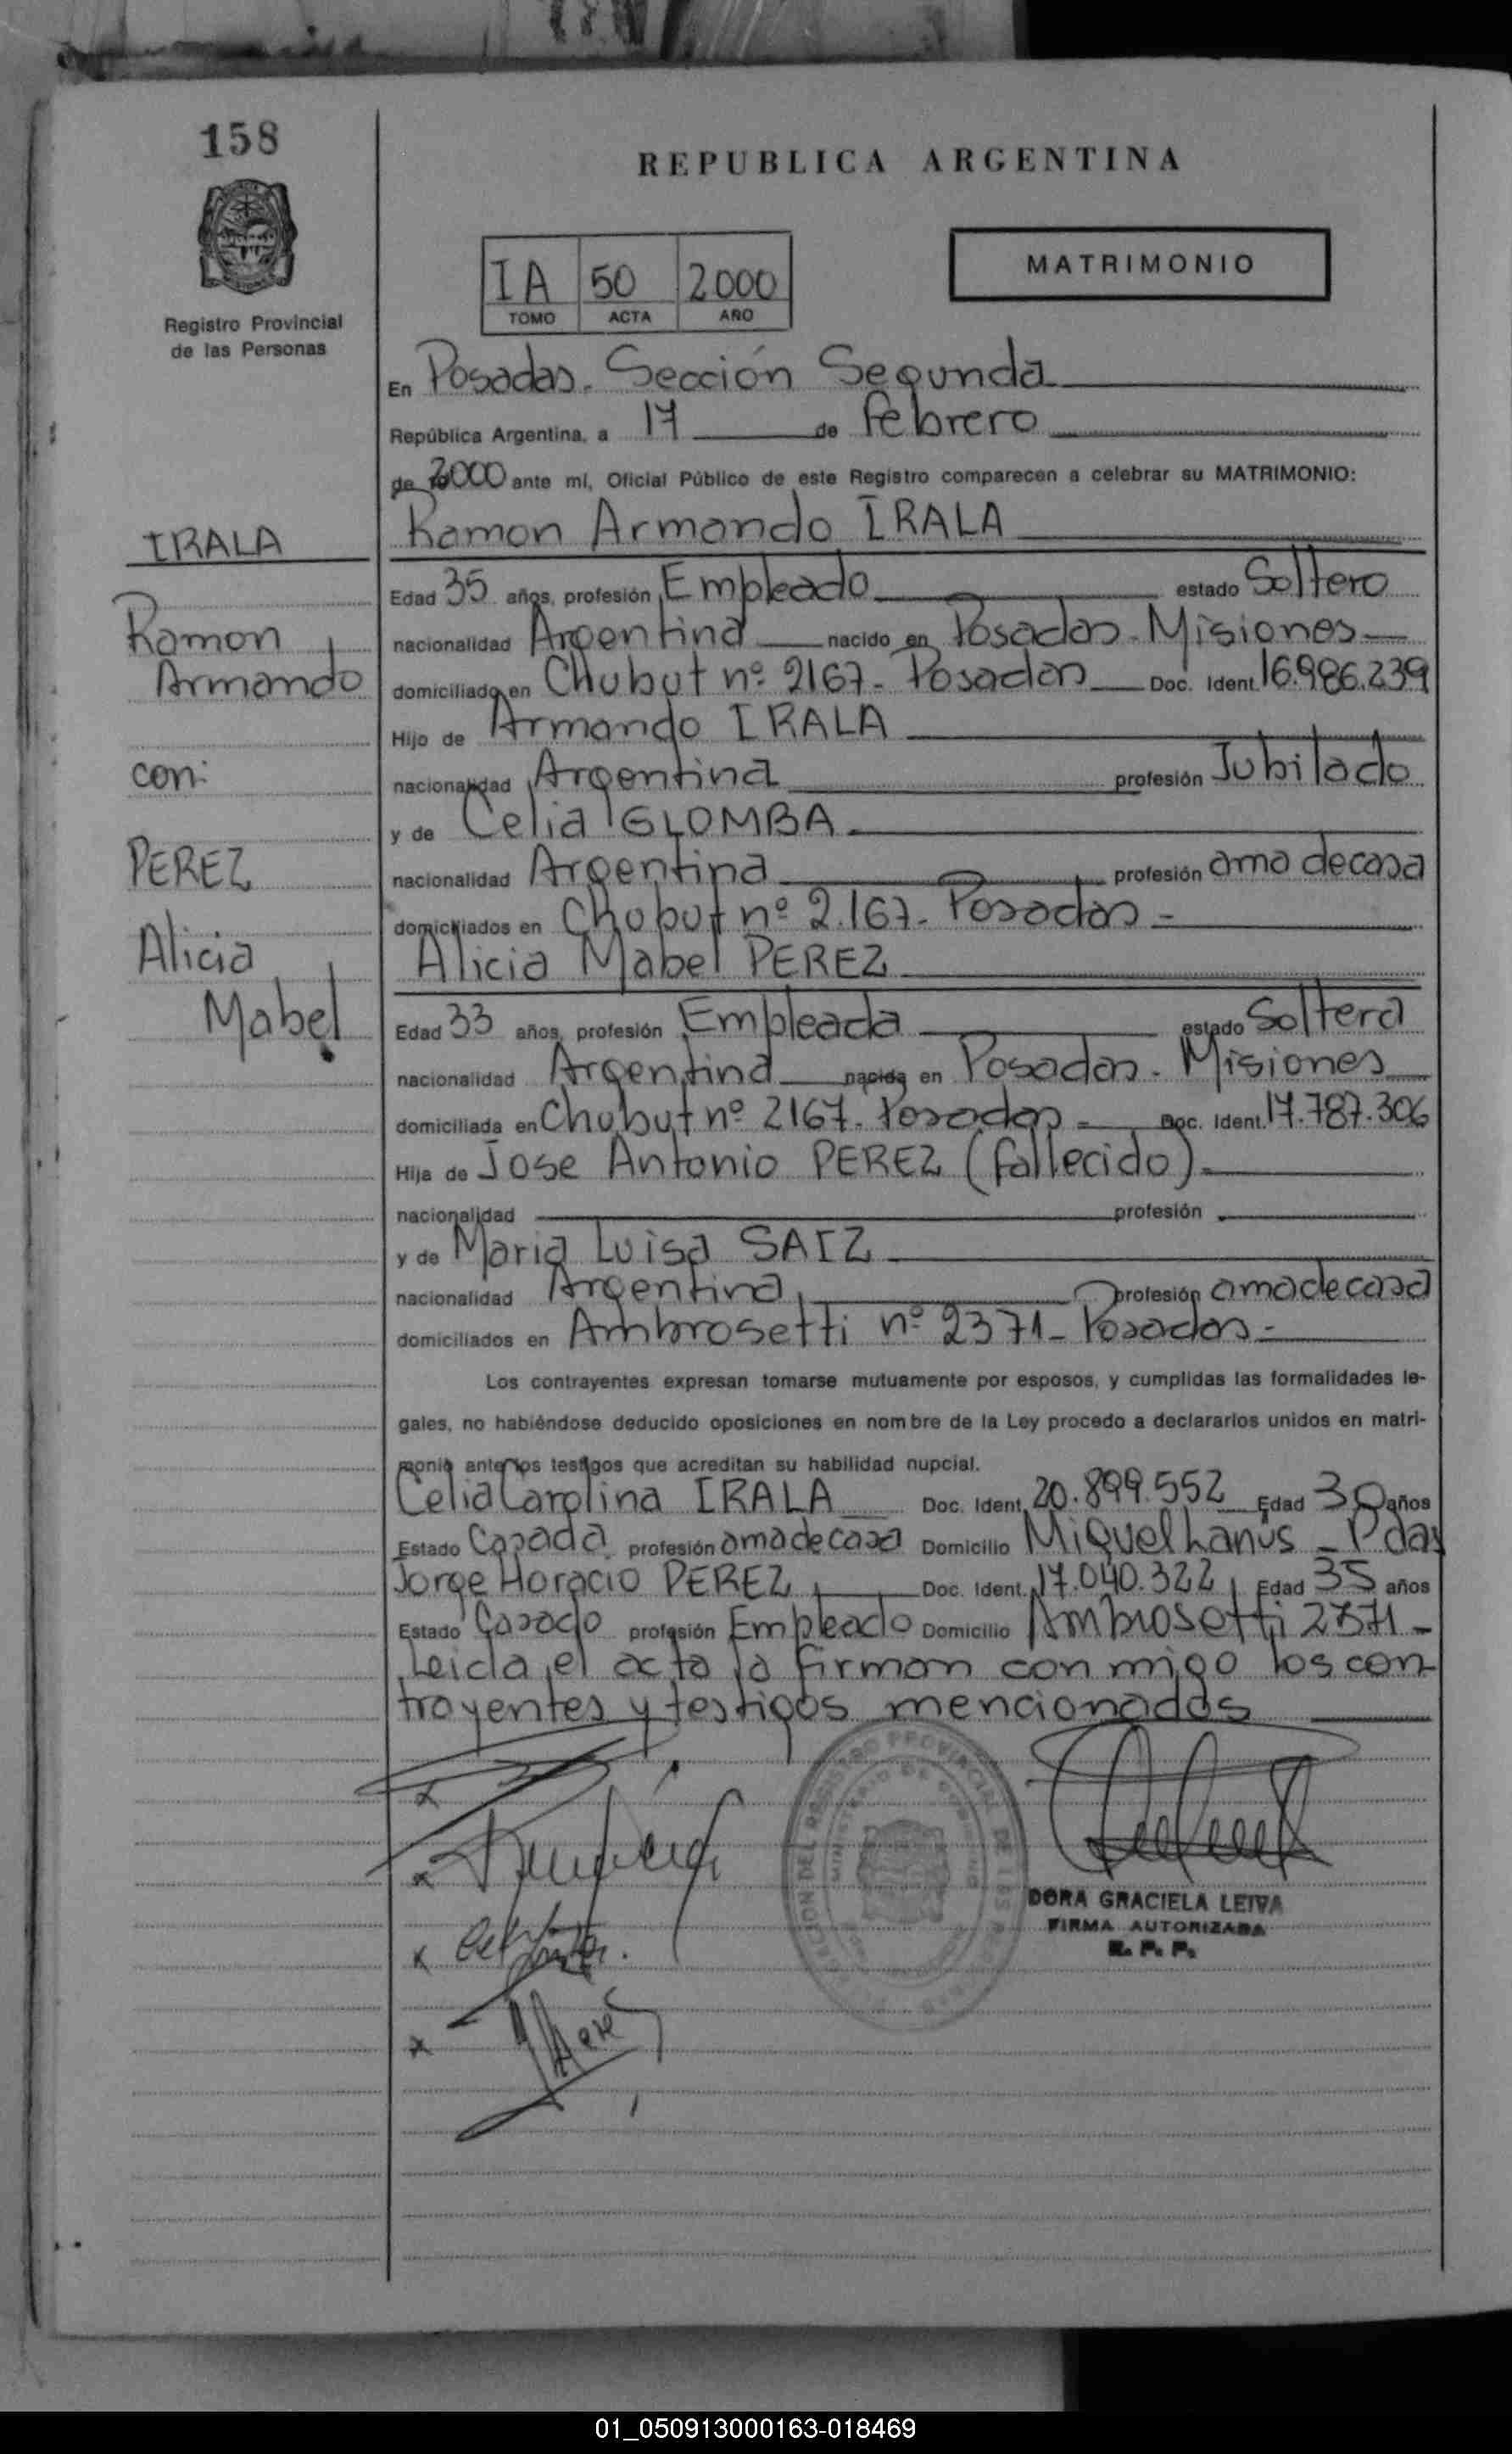 158
REPUBLICA ARGENTINA
MATRIMONIO
IA 50 2000
TOMO ACTA AÑO
Registro Provincial
de las Personas
En Posadas. Sección Segunda
República Argentina, a 17 de febrero
de 2000 ante mí, Oficial Público de este Registro comparecen a celebrar su MATRIMONIO:
IRALA
Ramon
Armando
con:
PEREZ
Alicia
Mabel
Ramon Armando IRALA
Edad 35 años, profesión Empleado estado Soltero
nacionalidad Argentina nacido en Posadas - Misiones
domiciliado en Chubut nº 2167 - Posadas Doc. Ident. 16.986.239
Hijo de Armando IRALA
nacionalidad Argentina profesión Jubilado
y de Celia GLOMBA
nacionalidad Argentina profesión ama de casa
domiciliados en Chubut nº 2.167 - Posadas -
Alicia Mabel PEREZ
Edad 33 años, profesión Empleada estado Soltera
nacionalidad Argentina nacida en Posadas - Misiones
domiciliada en Chubut nº 2167 - Posadas - Doc. Ident. 17.787.306
Hija de Jose Antonio PEREZ (fallecido).
nacionalidad profesión
y de Maria Luisa SAIZ
nacionalidad Argentina profesión ama de casa
domiciliados en Ambrosetti nº 2371 - Posadas -
Los contrayentes expresan tomarse mutuamente por esposos, y cumplidas las formalidades le-
gales, no habiéndose deducido oposiciones en nombre de la Ley procedo a declararlos unidos en matri-
monio ante los testigos que acreditan su habilidad nupcial.
Celia Carolina IRALA Doc. Ident. 20.899.552 Edad 30 años
Estado Casada profesión ama de casa Domicilio Miguel Lanús - Pdas
Jorge Horacio PEREZ Doc. Ident. 17.040.322 Edad 35 años
Estado Casado profesión Empleado Domicilio Ambrosetti 2371 -
Leida el acta la firman con migo los con-
trayentes y testigos mencionados
DORA GRACIELA LEIVA
FIRMA AUTORIZADA
R. P. P.
01_050913000163-018469